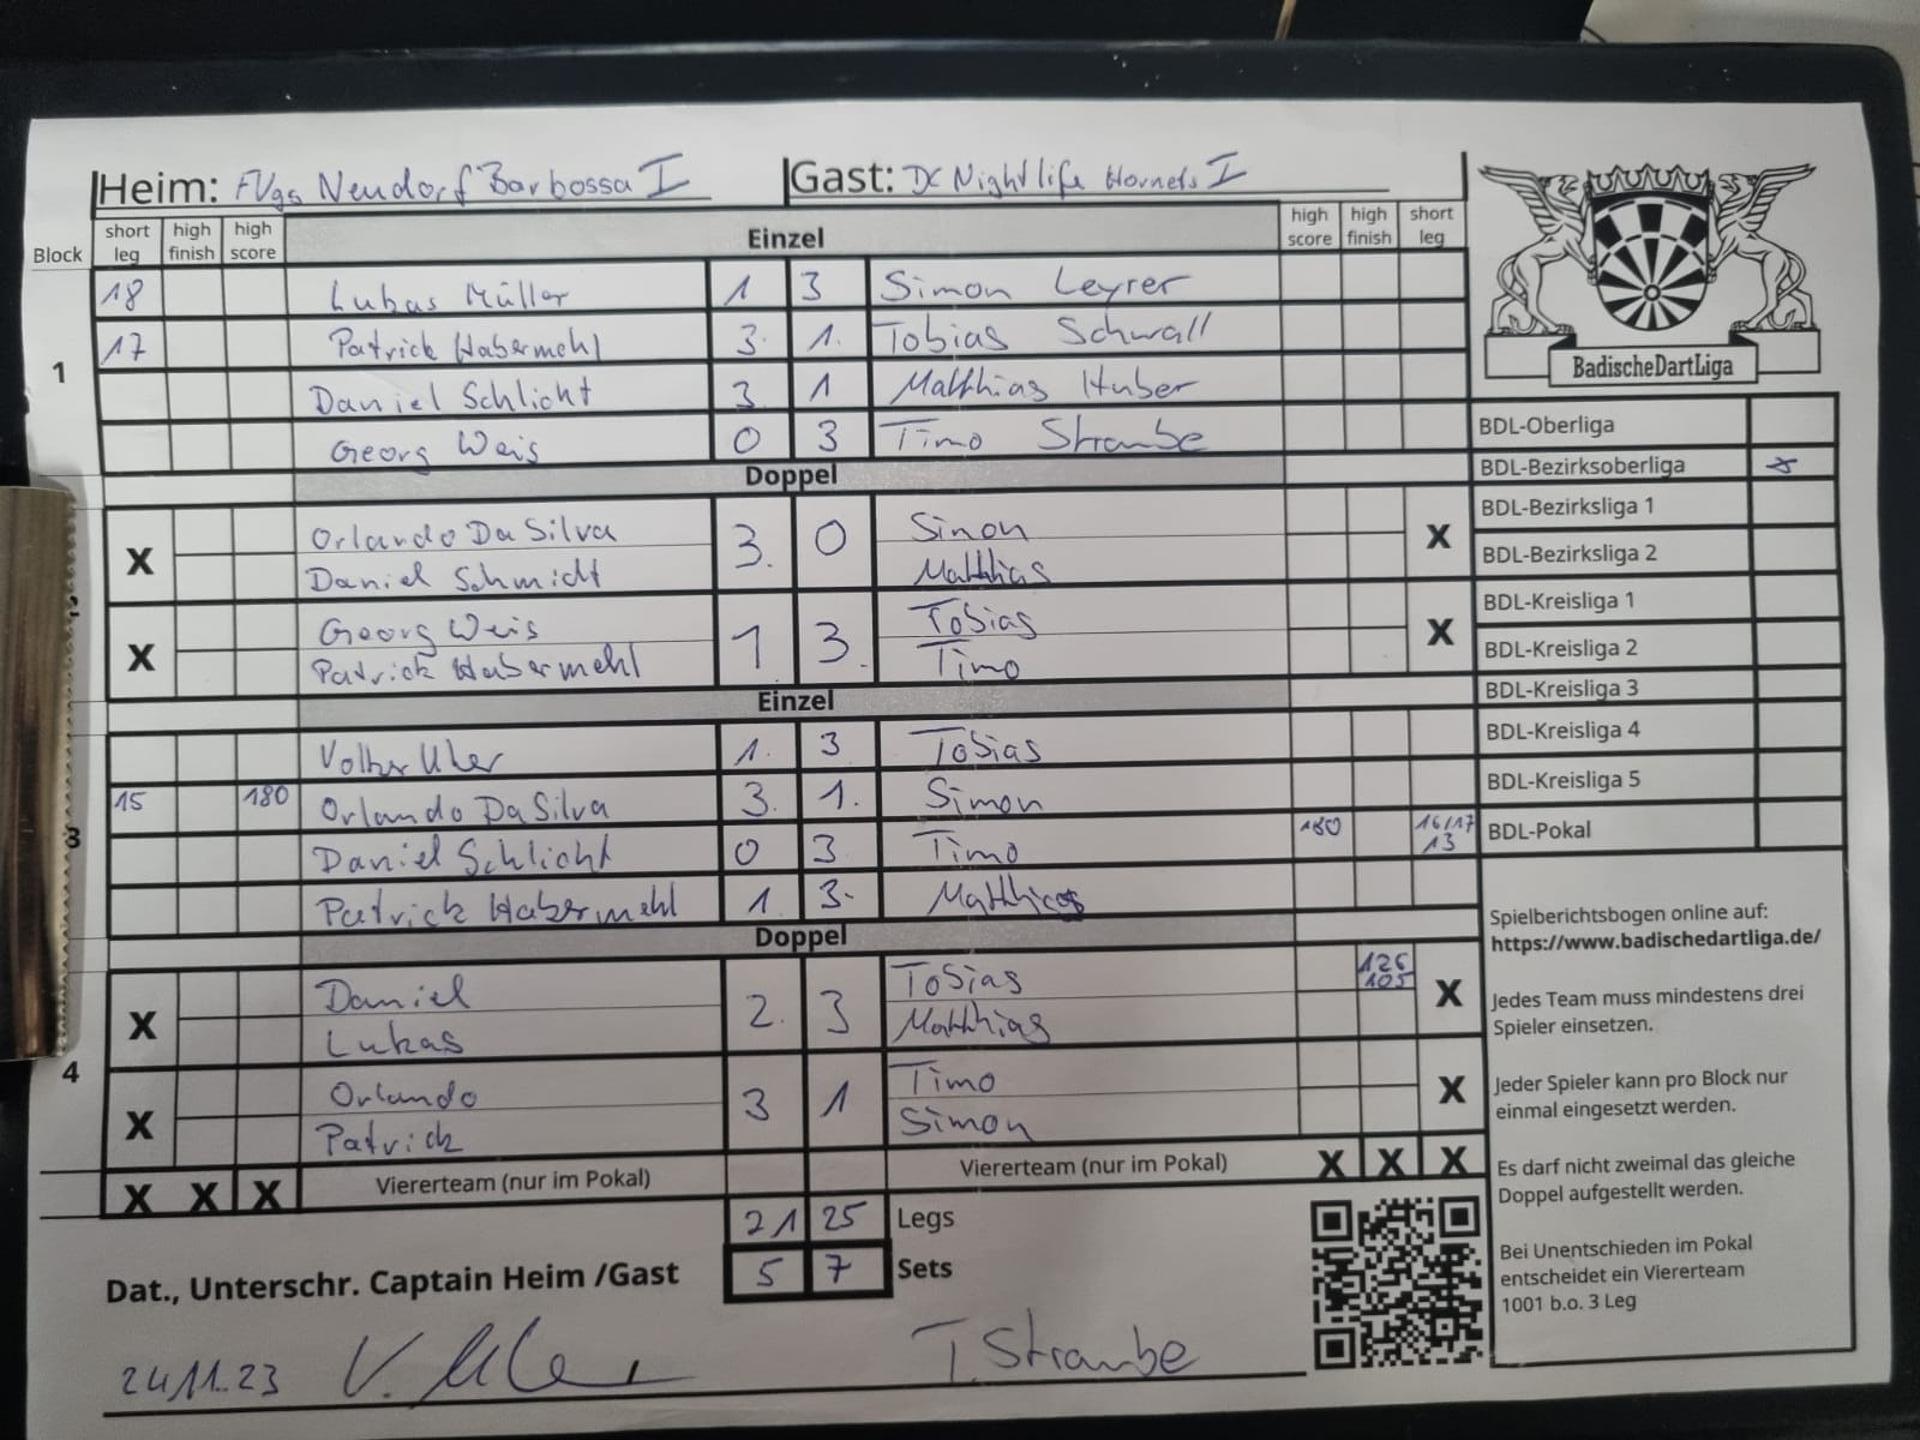 Heim: FVgg Neudorf Barbossa I Gast: DC Nightlife Hornets I
Block short leg high finish high score Einzel high score high finish short leg
1
18 Lukas Müller 1 3 Simon Leyrer
17 Patrick Habermehl 3. 1. Tobias Schwall
Daniel Schlicht 3 1 Matthias Huber
Georg Weis 0 3 Timo Straube
Doppel
X Orlando Da Silva 3. 0 Simon X
Daniel Schmidt Matthias
X Georg Weis 1 3. Tobias X
Patrick Habermehl Timo
Einzel
3
Volker Uher 1. 3 Tobias
15 180 Orlando Da Silva 3. 1. Simon
Daniel Schlicht 0 3 Timo 180 16/17 13
Patrick Habermehl 1. 3. Matthias
Doppel
4
X Daniel 2. 3 Tobias 126 105 X
Lukas Matthias
X Orlando 3 1 Timo X
Patrick Simon
X X X Viererteam (nur im Pokal) Viererteam (nur im Pokal) X X X
21 25 Legs
5 7 Sets
Dat., Unterschr. Captain Heim /Gast
24.11.23 T. Straube
BadischeDartLiga
BDL-Oberliga
BDL-Bezirksoberliga x
BDL-Bezirksliga 1
BDL-Bezirksliga 2
BDL-Kreisliga 1
BDL-Kreisliga 2
BDL-Kreisliga 3
BDL-Kreisliga 4
BDL-Kreisliga 5
BDL-Pokal
Spielberichtsbogen online auf:
https://www.badischedartliga.de/
Jedes Team muss mindestens drei
Spieler einsetzen.
Jeder Spieler kann pro Block nur
einmal eingesetzt werden.
Es darf nicht zweimal das gleiche
Doppel aufgestellt werden.
Bei Unentschieden im Pokal
entscheidet ein Viererteam
1001 b.o. 3 Leg